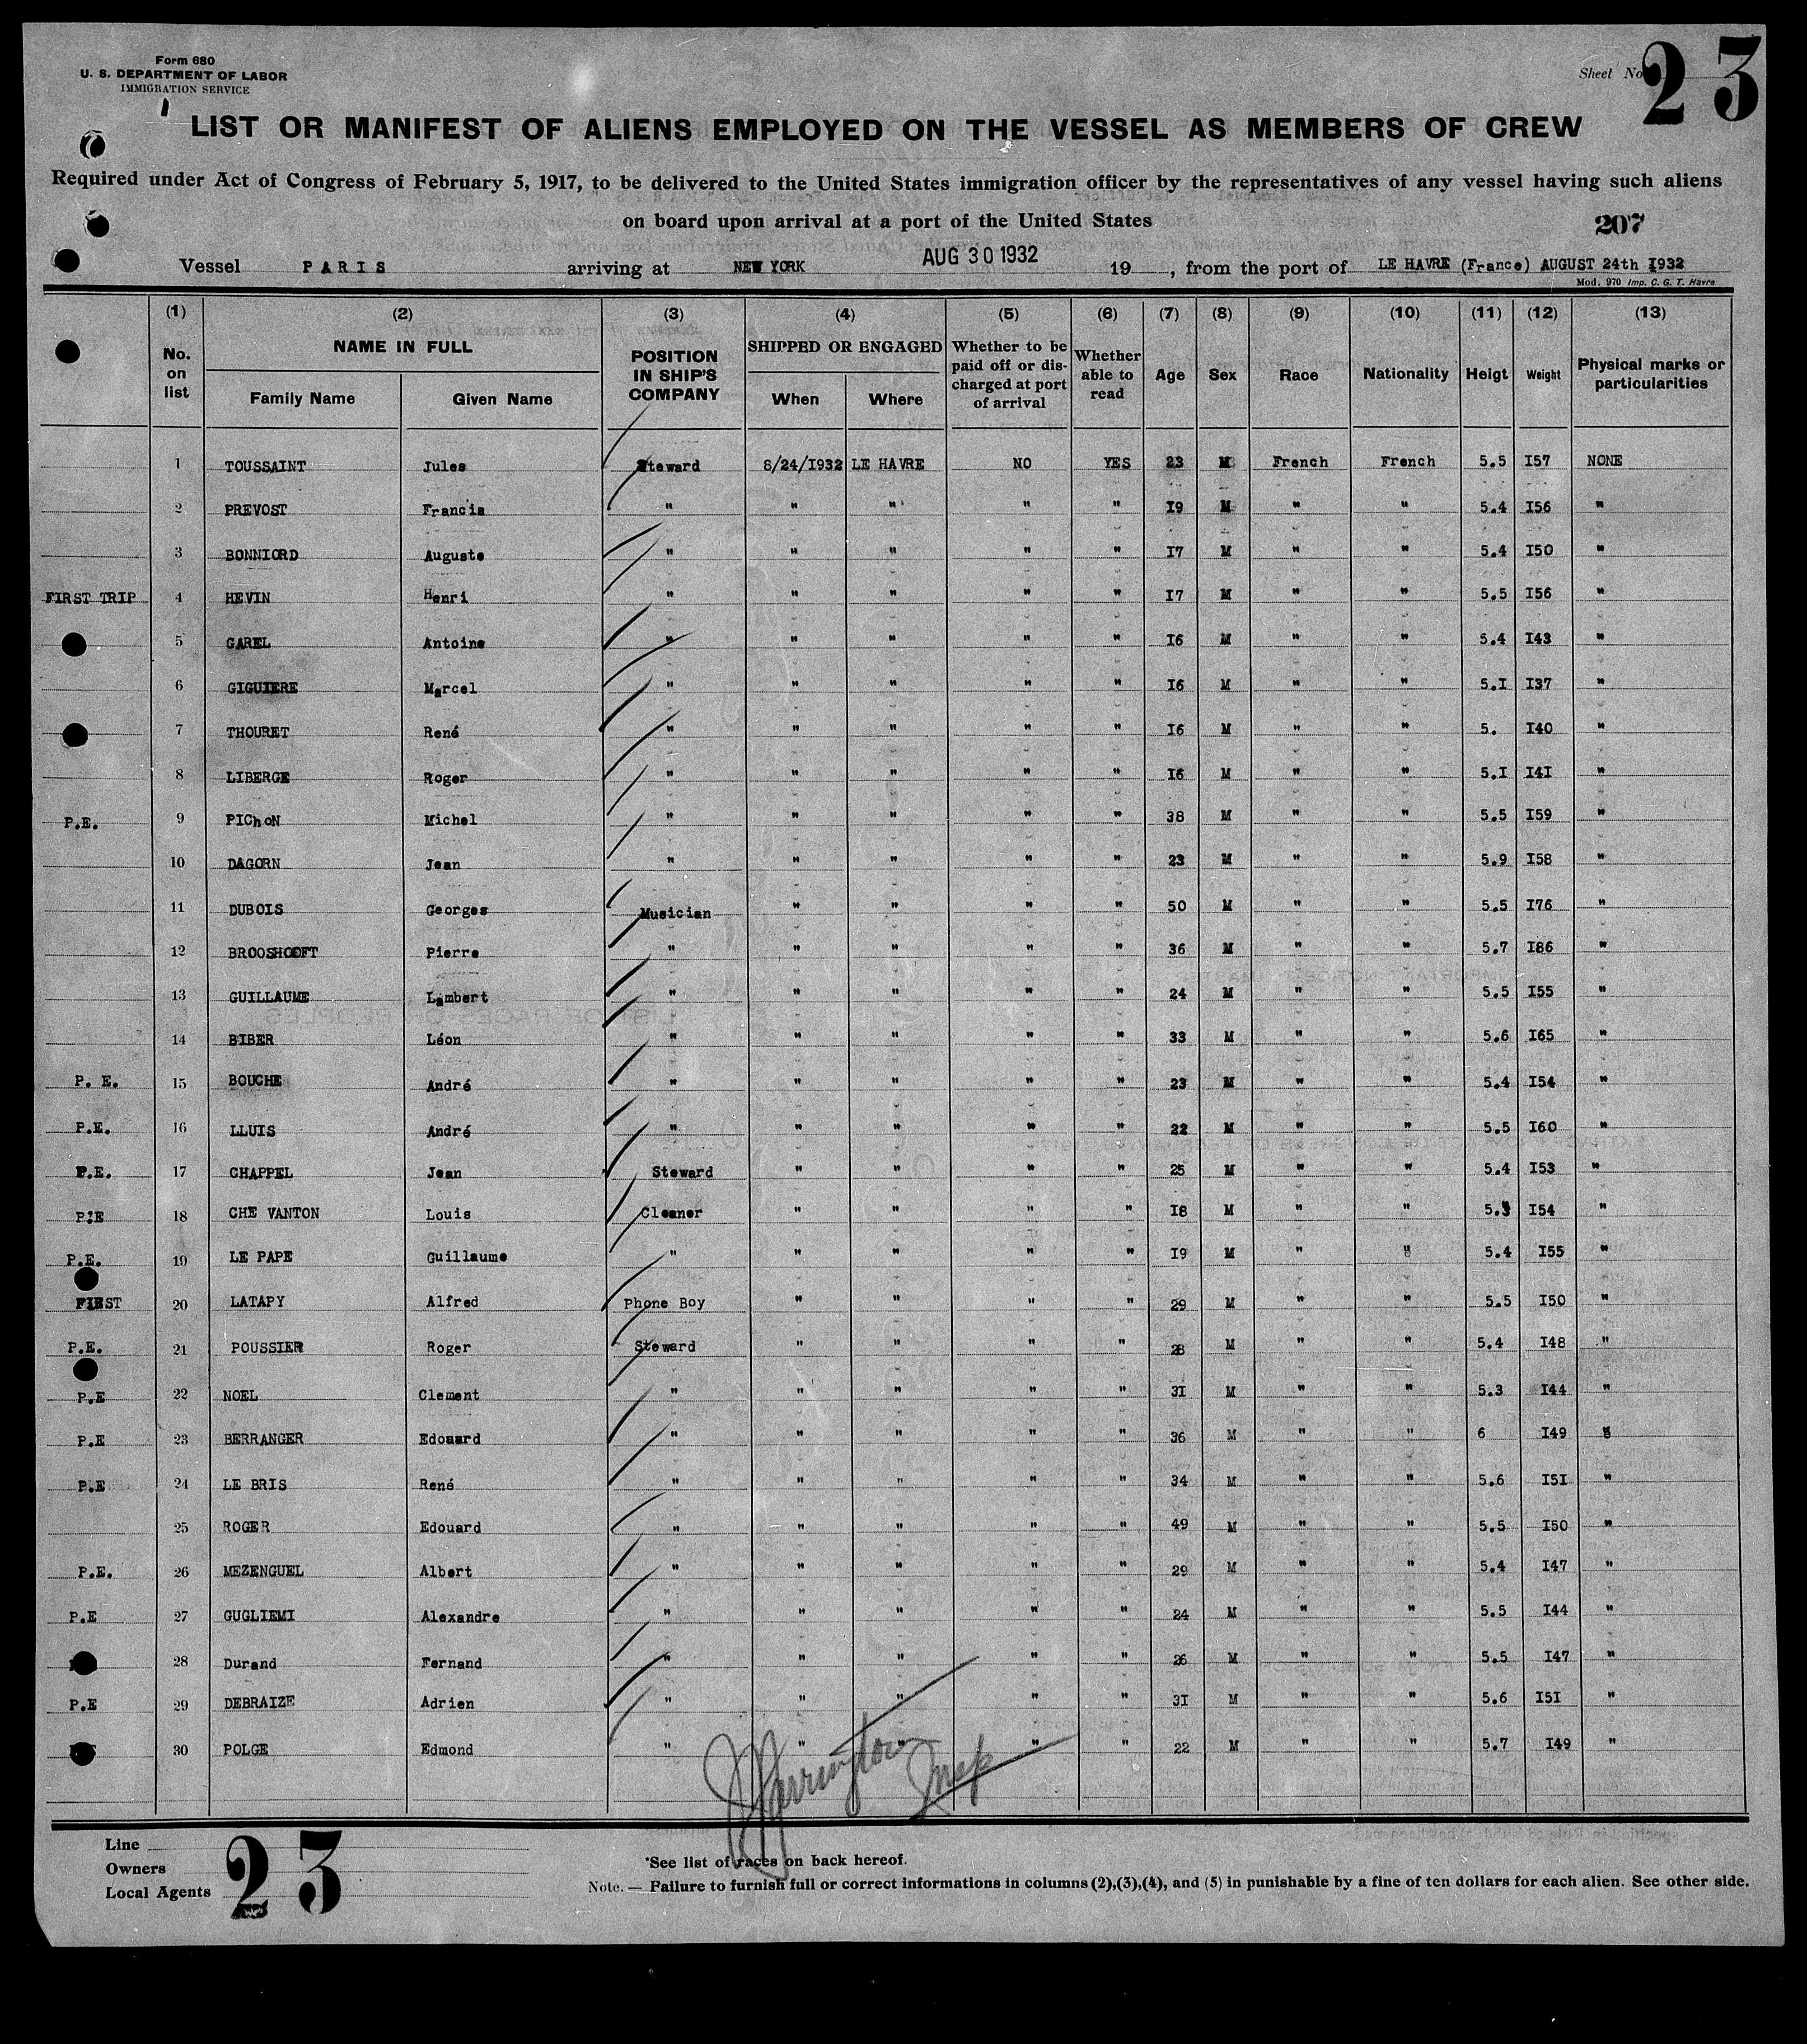 Form 680
U. S. DEPARTMENT OF LABOR
IMMIGRATION SERVICE
Sheet No 23
LIST OR MANIFEST OF ALIENS EMPLOYED ON THE VESSEL AS MEMBERS OF CREW
Required under Act of Congress of February 5, 1917, to be delivered to the United States immigration officer by the representatives of any vessel having such aliens
on board upon arrival at a port of the United States
207
Vessel PARIS arriving at NEW YORK AUG 30 1932 19 , from the port of LE HAVRE (France) AUGUST 24th I932
Mod. 970 Imp. C. G. T. Havre
(1) (2) (3) (4) (5) (6) (7) (8) (9) (10) (11) (12) (13)
No. on list NAME IN FULL Family Name Given Name POSITION IN SHIP'S COMPANY SHIPPED OR ENGAGED When Where Whether to be paid off or discharged at port of arrival Whether able to read Age Sex Race Nationality Heigt Weight Physical marks or particularities
1 TOUSSAINT Jules Steward 8/24/I932 LE HAVRE NO YES 23 M French French 5.5 I57 NONE
2 PREVOST Francis " " " " " I9 M " " 5.4 I56 "
3 BONNIORD Auguste " " " " " I7 M " " 5.4 I50 "
FIRST TRIP 4 HEVIN Henri " " " " " I7 M " " 5.5 I56 "
5 GAREL Antoine " " " " " I6 M " " 5.4 I43 "
6 GIGUIERE Marcel " " " " " I6 M " " 5.I I37 "
7 THOURET René " " " " " I6 M " " 5. I40 "
8 LIBERGE Roger " " " " " I6 M " " 5.I I4I "
P.E. 9 PIChON Michel " " " " " 38 M " " 5.5 I59 "
10 DAGORN Jean " " " " " 23 M " " 5.9 I58 "
11 DUBOIS Georges Musician " " " " 50 M " " 5.5 I76 "
12 BROOSHOOFT Pierre " " " " " 36 M " " 5.7 I86 "
13 GUILLAUME Lambert " " " " " 24 M " " 5.5 I55 "
14 BIBER Léon " " " " " 33 M " " 5.6 I65 "
P. E. 15 BOUCHE André " " " " " 23 M " " 5.4 I54 "
P.E. 16 LLUIS André " " " " " 22 M " " 5.5 I60 "
P.E. 17 CHAPPEL Jean Steward " " " " 25 M " " 5.4 I53 "
P.E 18 CHE VANTON Louis Cleaner " " " " I8 M " " 5.3 I54 "
P.E. 19 LE PAPE Guillaume " " " " " I9 M " " 5.4 I55 "
FIRST 20 LATAPY Alfred Phone Boy " " " " 29 M " " 5.5 I50 "
P.E. 21 POUSSIER Roger Steward " " " " 28 M " " 5.4 I48 "
P.E 22 NOEL Clement " " " " " 3I M " " 5.3 I44 "
P.E 23 BERRANGER Edouard " " " " " 36 M " " 6 I49 "
P.E 24 LE BRIS René " " " " " 34 M " " 5.6 I5I "
25 ROGER Edouard " " " " " 49 M " " 5.5 I50 "
P.E. 26 MEZENGUEL Albert " " " " " 29 M " " 5.4 I47 "
P.E 27 GUGLIEMI Alexandre " " " " " 24 M " " 5.5 I44 "
28 Durand Fernand " " " " " 26 M " " 5.5 I47 "
P.E 29 DEBRAIZE Adrien " " " " " 3I M " " 5.6 I5I "
30 POLGE Edmond " " " " " 22 M " " 5.7 I49 "
Harrington Insp
Line
Owners
Local Agents
23
*See list of races on back hereof.
Note. — Failure to furnish full or correct informations in columns (2),(3),(4), and (5) in punishable by a fine of ten dollars for each alien. See other side.